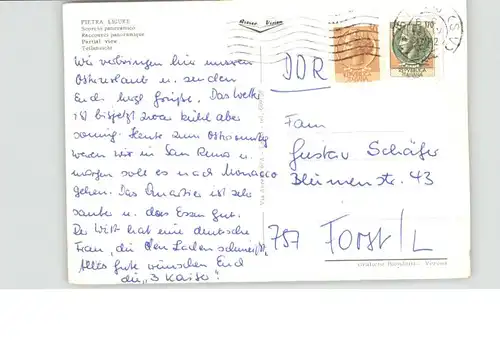 PIETRA LIGURE
Scorcio panoramico
Raccourci panoramique
Partial view
Teilansicht
Wir verbringen hier unseren
Osterurlaub u. senden
Euch herzl. Grüße. Das Wetter
ist bisjetzt zwar kühl aber
sonnig. Heute zum Ostersonntag
waren wir in San Remo u.
morgen soll es nach Monacco
gehen. Das Quartier ist sehr
sauber u. das Essen gut.
Der Wirt hat eine deutsche
Frau, die den Laden schmeißt.
Alles gute wünschen Euch
die „3 Kaiser"!
DDR
Fam
Gustav Schäfer
Blumenstr. 43
757 Forst/L